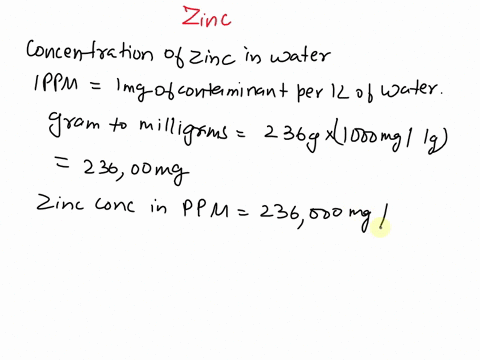 Zinc
Concentration of zinc in water
1PPM = 1mg of contaminant per 1L of water.
gram to milligrams = 236g x (1000mg / 1g)
= 236,00mg
Zinc conc in PPM = 236,000 mg /